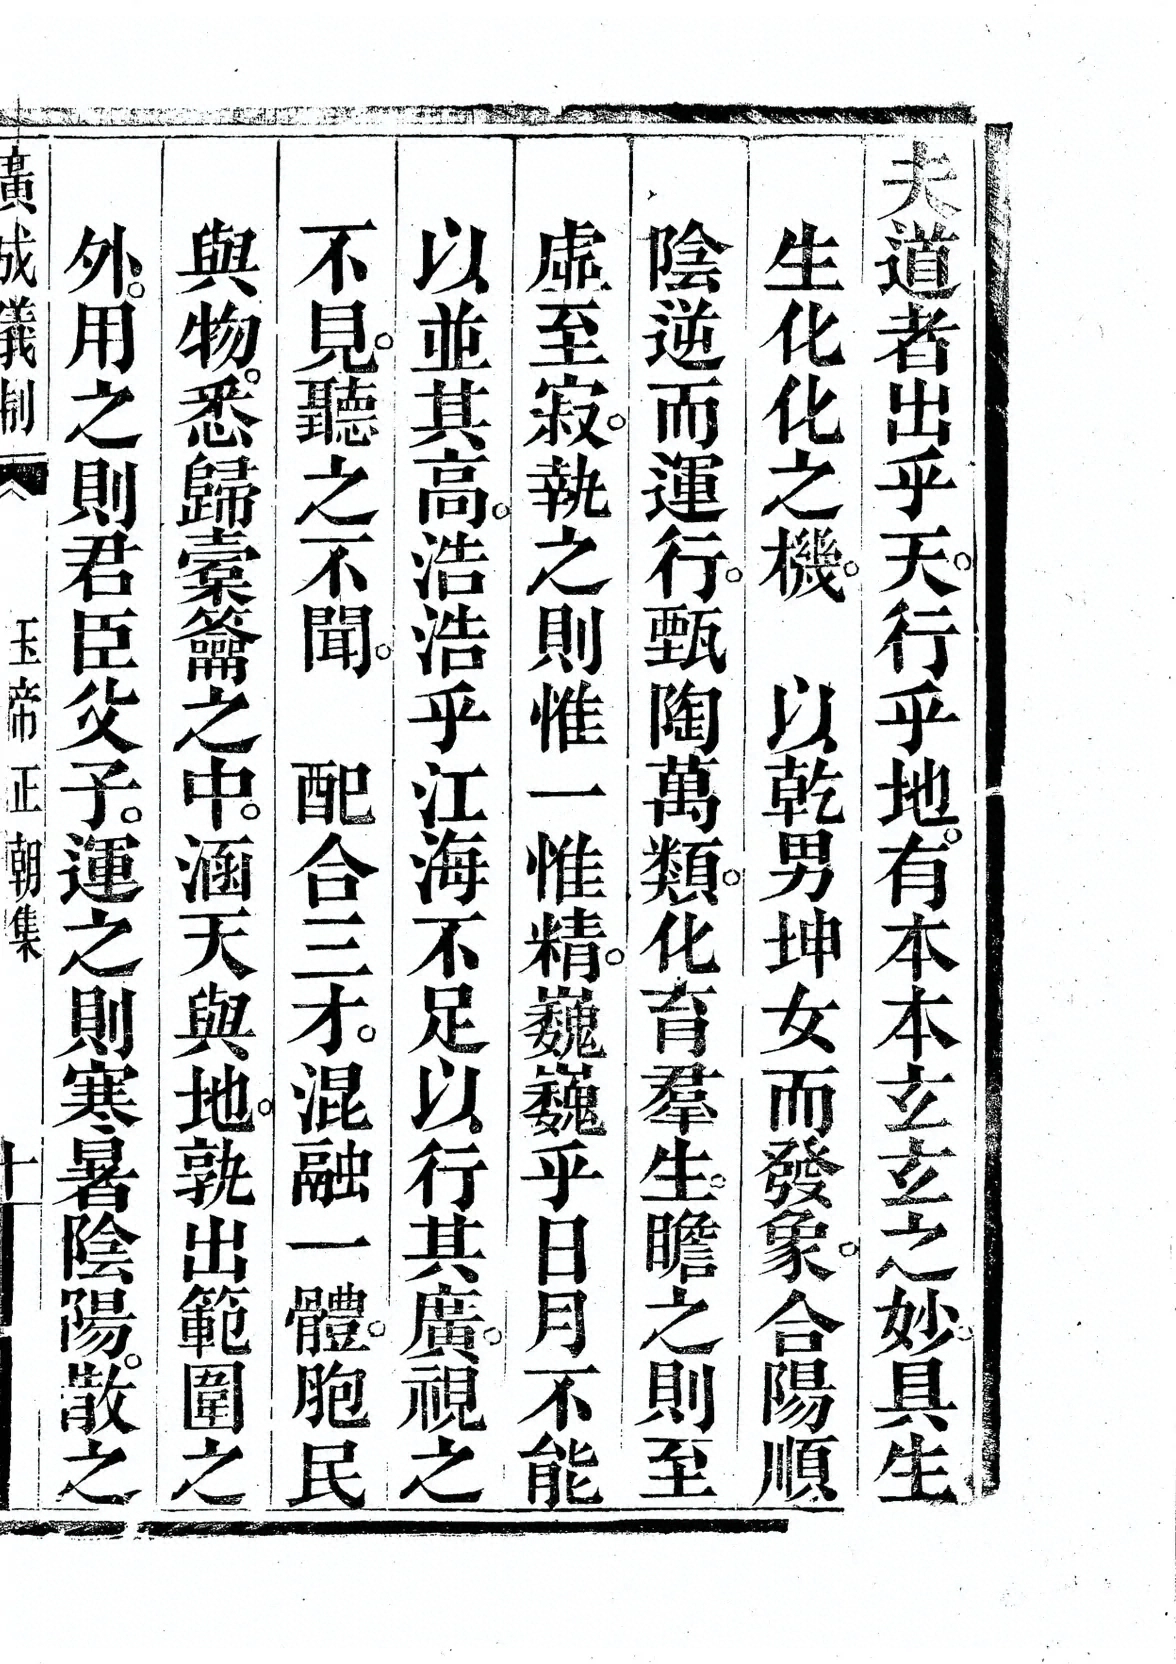 夫道者出乎天。行乎地。有本本立立之妙。具生
生化化之機。　以乾男坤女而發象。合陽順
陰逆而運行。甄陶萬類。化育羣生。瞻之則至
虛至寂。執之則惟一惟精。巍巍乎日月不能
以並其高。浩浩乎江海不足以行其廣。視之
不見。聽之不聞。　配合三才。混融一體。胞民
與物。悉歸橐籥之中。涵天與地。孰出範圍之
外。用之則君臣父子。運之則寒暑陰陽。散之
廣成儀制　玉帝正朝集　十